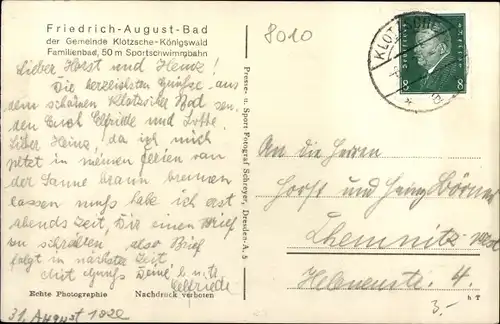 Friedrich-August-Bad
der Gemeinde Klotzsche-Königswald
Familienbad, 50 m Sportschwimmbahn
8010
KLOTZSCHE
Lieber Horst und Heinz!
Die herzlichsten Grüße aus
dem schönen Klotzscher Bad sen-
den Euch Elfriede und Lotte.
Lieber Heinz, da ich mich
jetzt in meinen Ferien von
der Sonne braun brennen
lassen muß habe ich erst
abends Zeit, Dir einen Brief
zu schreiben, also Brief
folgt in nächster Zeit
Mit Gruß Deine
Elfriede
Echte Photographie Nachdruck verboten
31. August
Presse- u. Sport Fotograf Schreyer, Dresden-A. 5
An die Herren
Horst und Heinz Börner
Chemnitz West
Helenenstr. 4.
3.-
h T